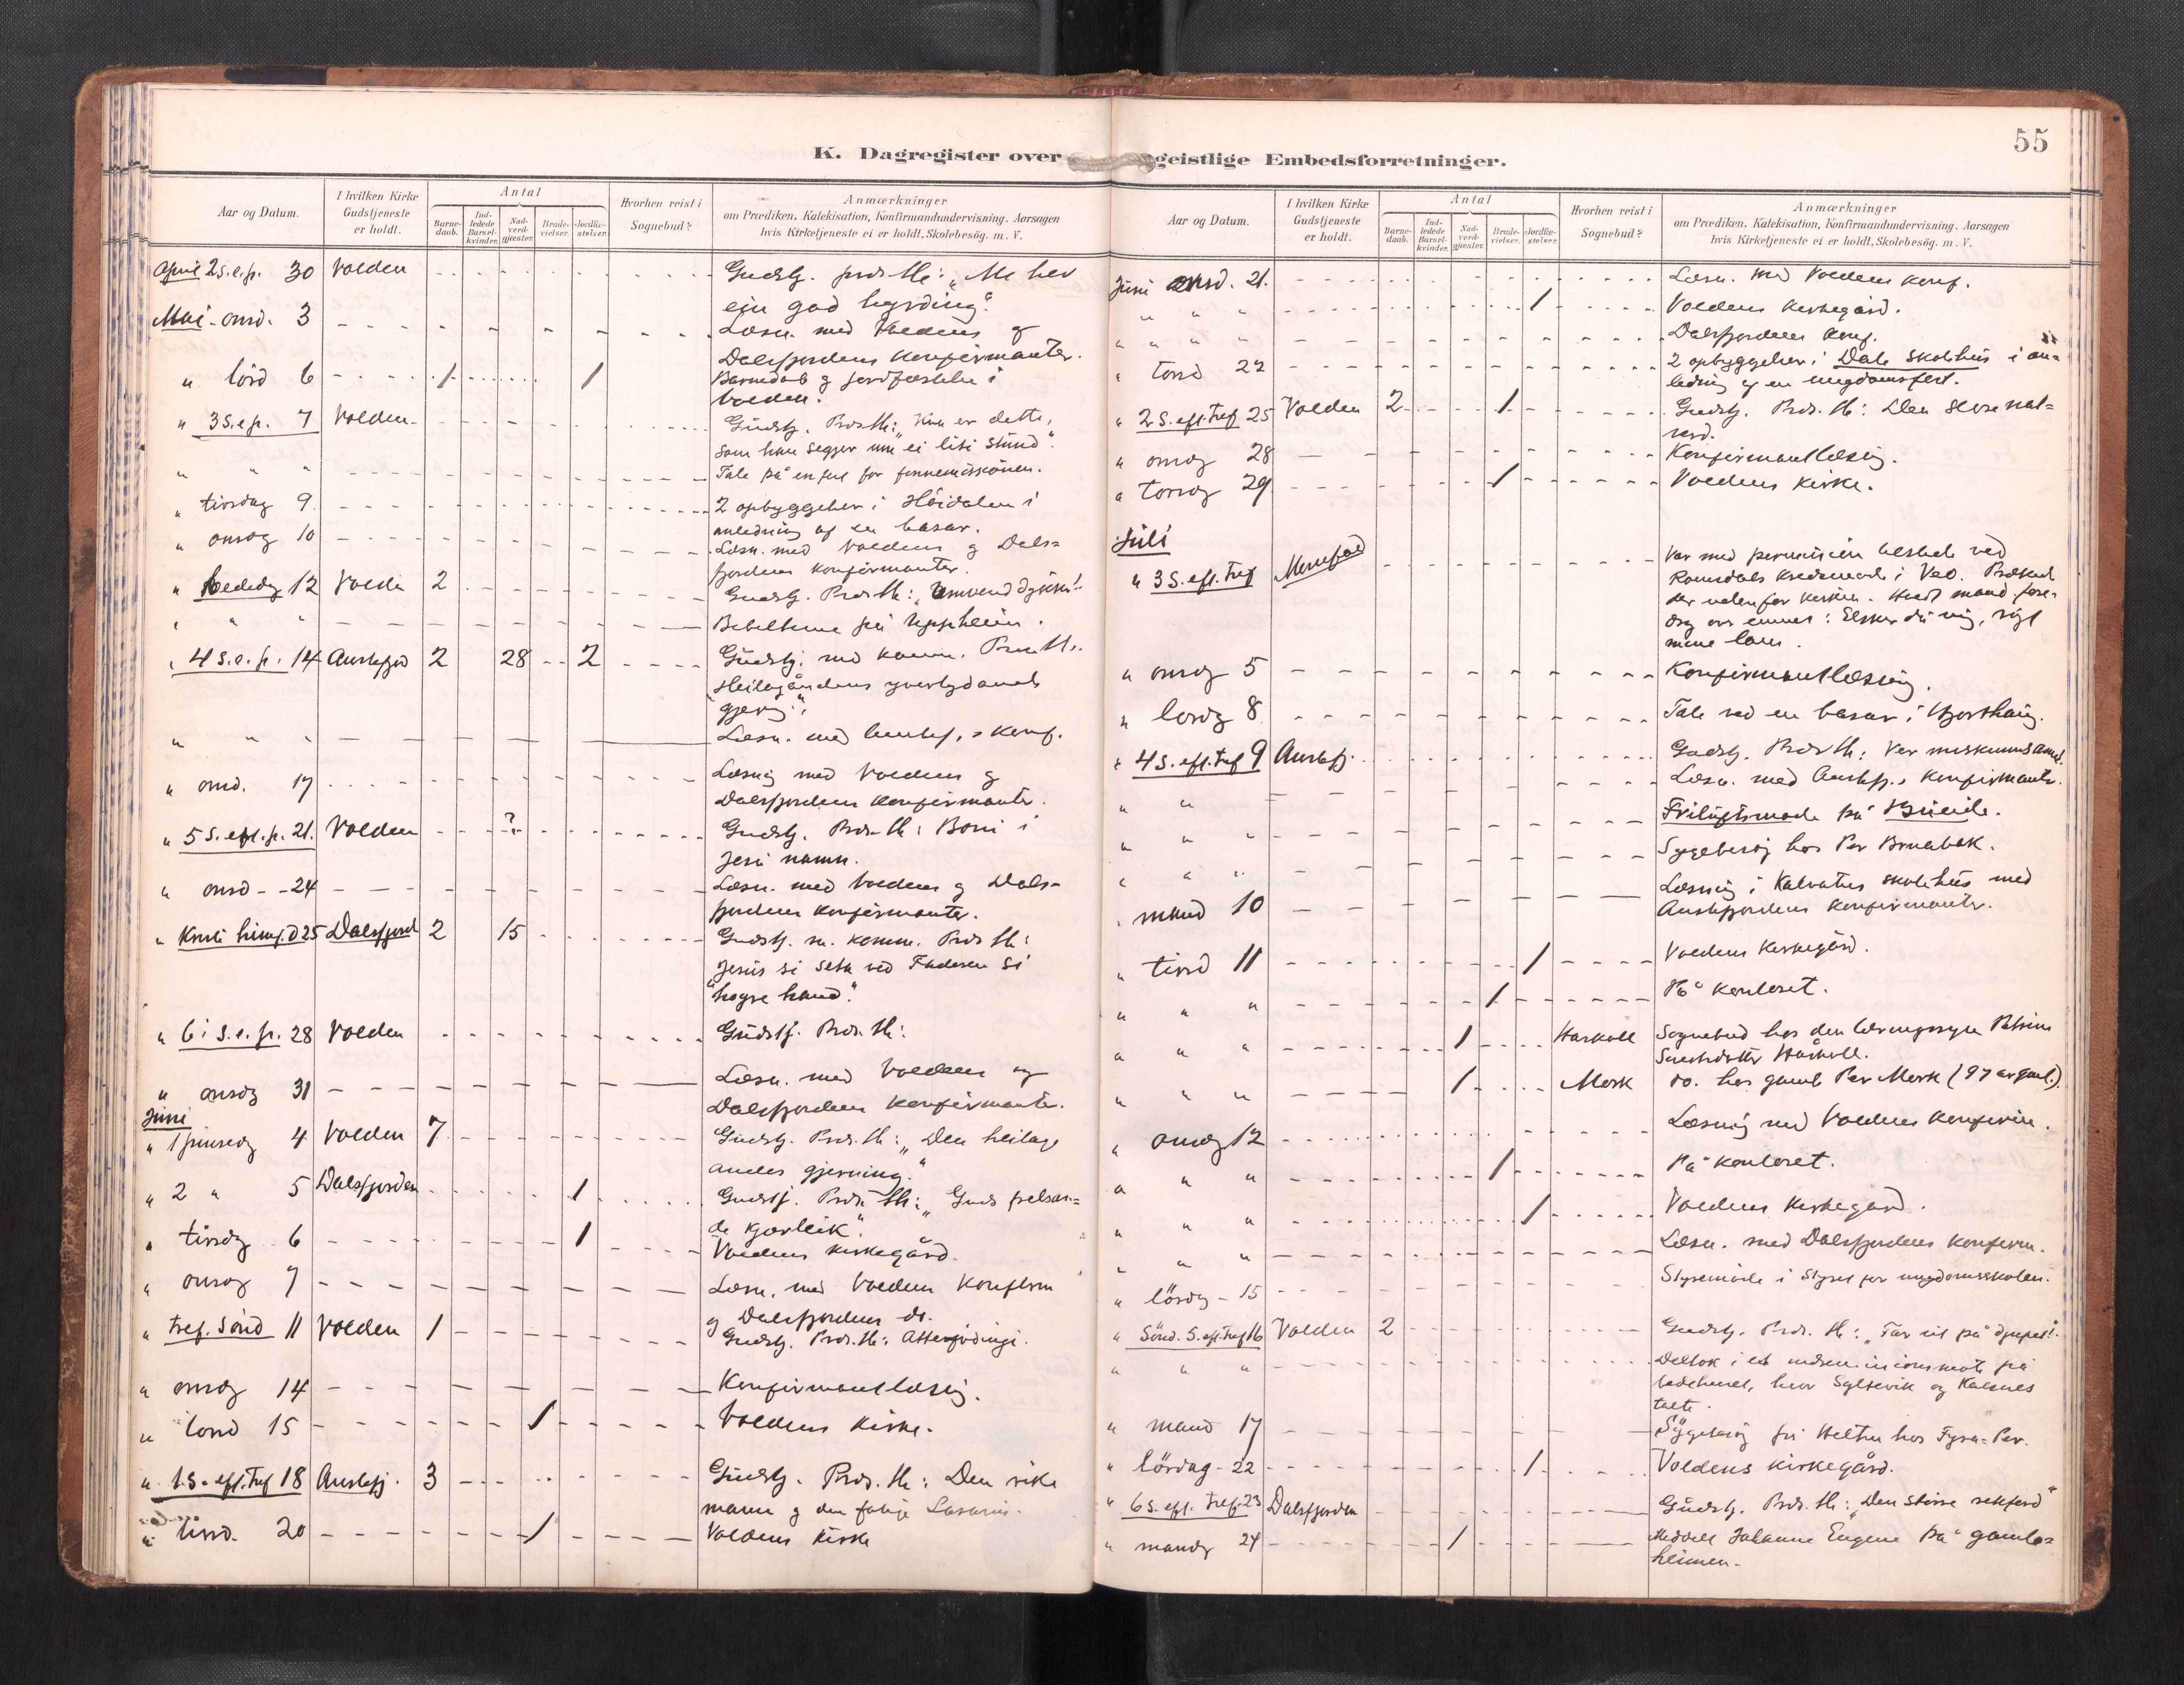 55
K. Dagregister over geistlige Embedsforretninger.
Aar og Datum. I hvilken Kirke Gudstjeneste er holdt. Antal Barne-daab. Ind-ledede Barsel-kvinder. Nad-verd-gjæster. Brude-vielser. Jordfæ-stelser. Hvorhen reist i Sognebud? Anmærkninger om Prædiken, Katekisation, Konfirmandundervisning, Aarsagen hvis Kirketjeneste ei er holdt, Skolebesög. m. V.
April 2 s. e. p. 30 Volden Gudstj. præs. th: "Me hev
ein god hyrding".
Mai - onsd. 3 Læsn. med Voldens og
Dalsfjordens Konfirmanter.
" lörd 6 1 1 Barnedåb og jordfæstelse i
Volden.
" 3 S. e. p. 7 Volden Gudstj. Præs th: Kva er dette,
som han segjer um "ei liti stund".
" " " Tale på en fest for finnemissionen.
" tirsdag 9 2 opbyggelser i Höidalen i
anledning af en basar.
" onsdg 10 Læsn. med Voldens og Dals=
fjordens konfirmanter.
" Bededag 12 Volden 2 Gudstj. Præs th: "Umvend dykker!"
" " " Bibeltime på Uppheim.
" 4 S. e. p. 14 Austefjord 2 28 2 Gudstj. med komm. Præs th:
"Heilagåndens yvertydande
gjerning".
" " " Læsn. med Austefj.s konf.
" onsd. 17 Læsning med Voldens og
Dalsfjordens Konfirmanter.
" 5 S. eft. p. 21. Volden ? Gudstj. Præs th: Boni i
Jesu namn.
" onsd - - 24 Læsn. med Voldens og Dals=
fjordens konfirmanter.
" Kristi himf. d 25 Dalsfjord 2 15 Gudstj. m. komm. Præs th:
"Jesus si seta ved Faderen si
högre hand".
" 6 i S. e. p. 28 Volden Gudstj. Præs. th:
" onsdg 31 Læsn. med Voldens og
Dalsfjordens konfirmanter.
Juni
" 1 pinsedg 4 Volden 7 Gudstj. Præs. th: "Den heilage
andes gjerning."
" 2 " 5 Dalsfjorden 1 Gudstj. Præs. th: "Guds frelsan=
de kjærleik".
" tirsdg 6 1 Voldens kirkegård.
" onsdg 7 Læsn. med Voldens Konfirm
og Dalsfjordens do.
" tref. Sönd 11 Volden 1 Gudstj. Præs. th: Atterfödingi.
" onsdg 14 Konfirmantlæsing.
" torsd 15 1 Voldens kirke.
" 1. S. eft. Tref 18 Austefj. 3 Gudstj. Præs. th: Den rike
mann og den fatige Lasarus.
" tirsd. 20 1 Voldens kirke
Aar og Datum. I hvilken Kirke Gudstjeneste er holdt. Antal Barne-daab. Ind-ledede Barsel-kvinder. Nad-verd-gjæster. Brude-vielser. Jordfæ-stelser. Hvorhen reist i Sognebud? Anmærkninger om Prædiken, Katekisation, Konfirmandundervisning, Aarsagen hvis Kirketjeneste ei er holdt, Skolebesög. m. V.
Juni onsd. 21. Læsn. med Voldens konf.
" " " 1 Voldens kirkegård.
" " " Dalsfjordens konf.
" torsd 22 2 opbyggelser i Dale skolehus i an=
ledning af en ungdomsfest.
" 2 S. eft. Tref 25 Volden 2 1 Gudstj. Præs. th: Den store nat=
verd.
" onsdg 28 Konfirmantlæsing.
" torsdg 29 1 Voldens kirke.
Juli
" 3 S. eft. Tref Messefald Var med permission tilstede ved
Romsdals kredsmøde i Veö.
mine lam.
" onsdg 5 Konfirmantlæsing.
" lördg 8 Tale ved en basar i Hjorthaug.
" 4 S. eft. Tref 9 Austefj. Gudstj. Præs th: Ver miskunnsame.
" " Læsn. med Austefj.s konfirmanter.
" " " Friluftsmøde på
" " " Sygebesög hos Per Brunebak.
" mand 10 Læsning i Kalvatns skolehus med
Austefjordens konfirmanter.
" tirsd 11 1 Voldens kirkegård.
" " " 1 På kontoret.
" " " 1 Haskoll Sognebud hos den
" " " 1 Mork do. hos gamle Per Mork (97 år gaml.)
" onsdg 12 Læsning med Voldens konfirm.
" " " 1 På kontoret.
" " " 1 Voldens kirkegård.
" " Læsn. med Dalsfjordens konfirm.
" lördg - 15 Styremöde i styret for ungdomsskolen.
" Sönd. 5. eft. Tref 16 Volden 2 Gudstj. Præs. th: "Far ut på djupet!"
" " " Deltok i et indremissionsmöte på
bedehuset, hvor Syltevik og Kalsnes
talte.
" mand 17 Sygebesög på Heltne hos Fyrn=Per.
" lördag - 22 1 Voldens kirkegård.
" 6 S. eft. Tref. 23 Dalsfjorden Gudstj. Præs. th: "Den större retferd"
" mandg 24 1 Meddelt Johanne Eugene på gamle=
heimen.